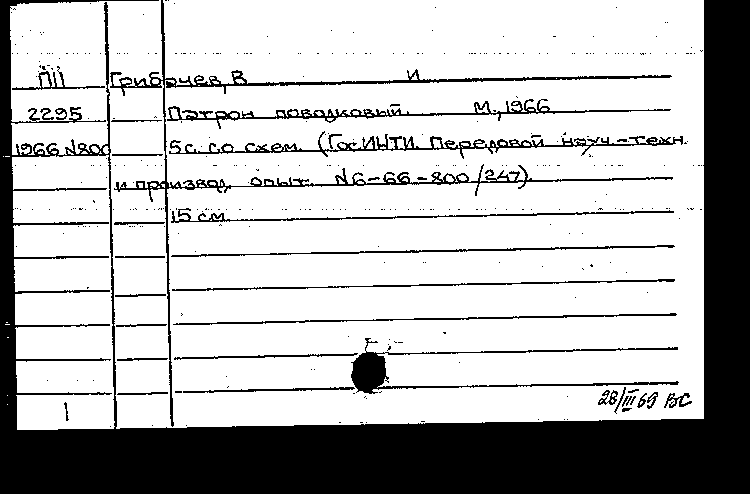 ПII Грибачев, В И
2295 Патрон поводковый. М., 1966
1966 N800 5с. со схем. (ГосИНТИ. Передовой науч.-техн
и производ. опыт. N6-66-800/247).
15 см.
1
28/III 69 ВС